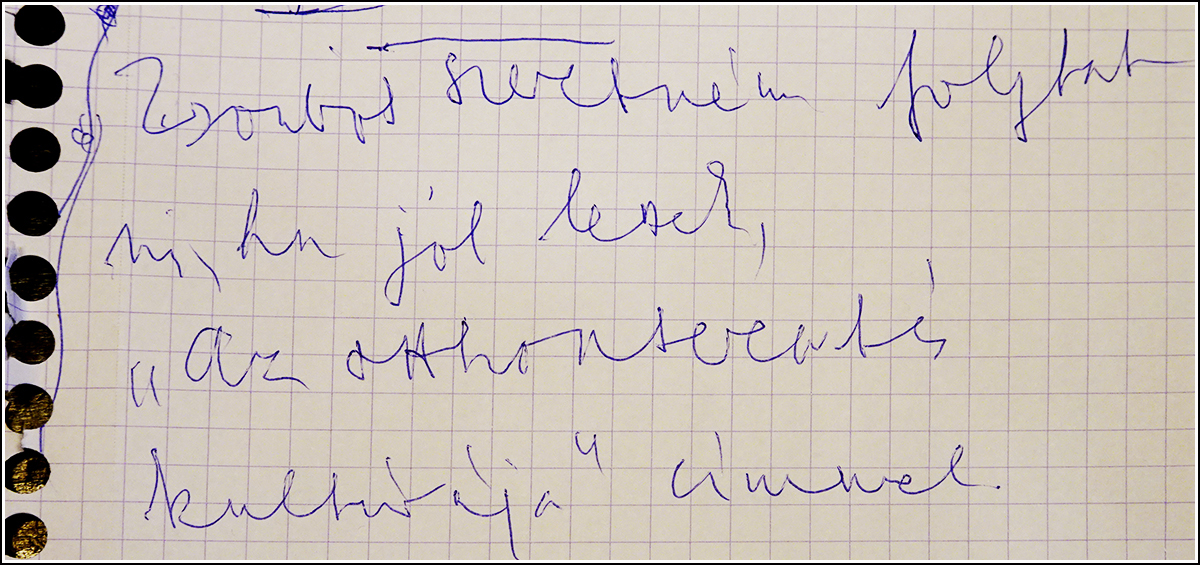 szeretném folytat
ni, ha jól leszek,
„Az otthonteremtés
kultúrája" címmel.